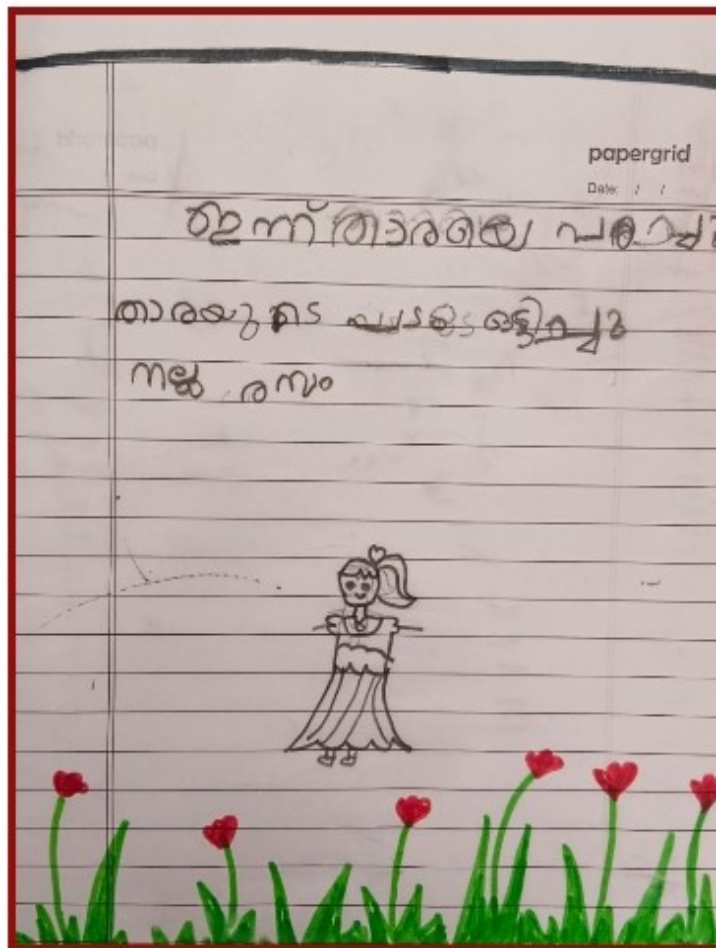 papergrid
Date: / /
ഇന്ന് താരയെ
താരയുടെ ഒട്ടിച്ചു
നല്ല രസം